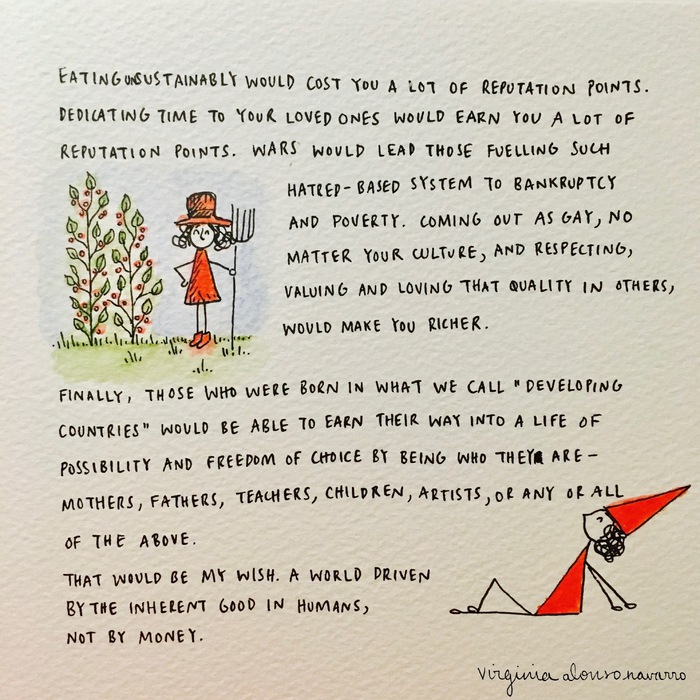 EATING UNSUSTAINABLY WOULD COST YOU A LOT OF REPUTATION POINTS.
DEDICATING TIME TO YOUR LOVED ONES WOULD EARN YOU A LOT OF
REPUTATION POINTS. WARS WOULD LEAD THOSE FUELLING SUCH
HATRED-BASED SYSTEM TO BANKRUPTCY
AND POVERTY. COMING OUT AS GAY, NO
MATTER YOUR CULTURE, AND RESPECTING,
VALUING AND LOVING THAT QUALITY IN OTHERS,
WOULD MAKE YOU RICHER.
FINALLY, THOSE WHO WERE BORN IN WHAT WE CALL "DEVELOPING
COUNTRIES" WOULD BE ABLE TO EARN THEIR WAY INTO A LIFE OF
POSSIBILITY AND FREEDOM OF CHOICE BY BEING WHO THEY ARE -
MOTHERS, FATHERS, TEACHERS, CHILDREN, ARTISTS, OR ANY OR ALL
OF THE ABOVE.
THAT WOULD BE MY WISH. A WORLD DRIVEN
BY THE INHERENT GOOD IN HUMANS,
NOT BY MONEY.
virginia alonso navarro